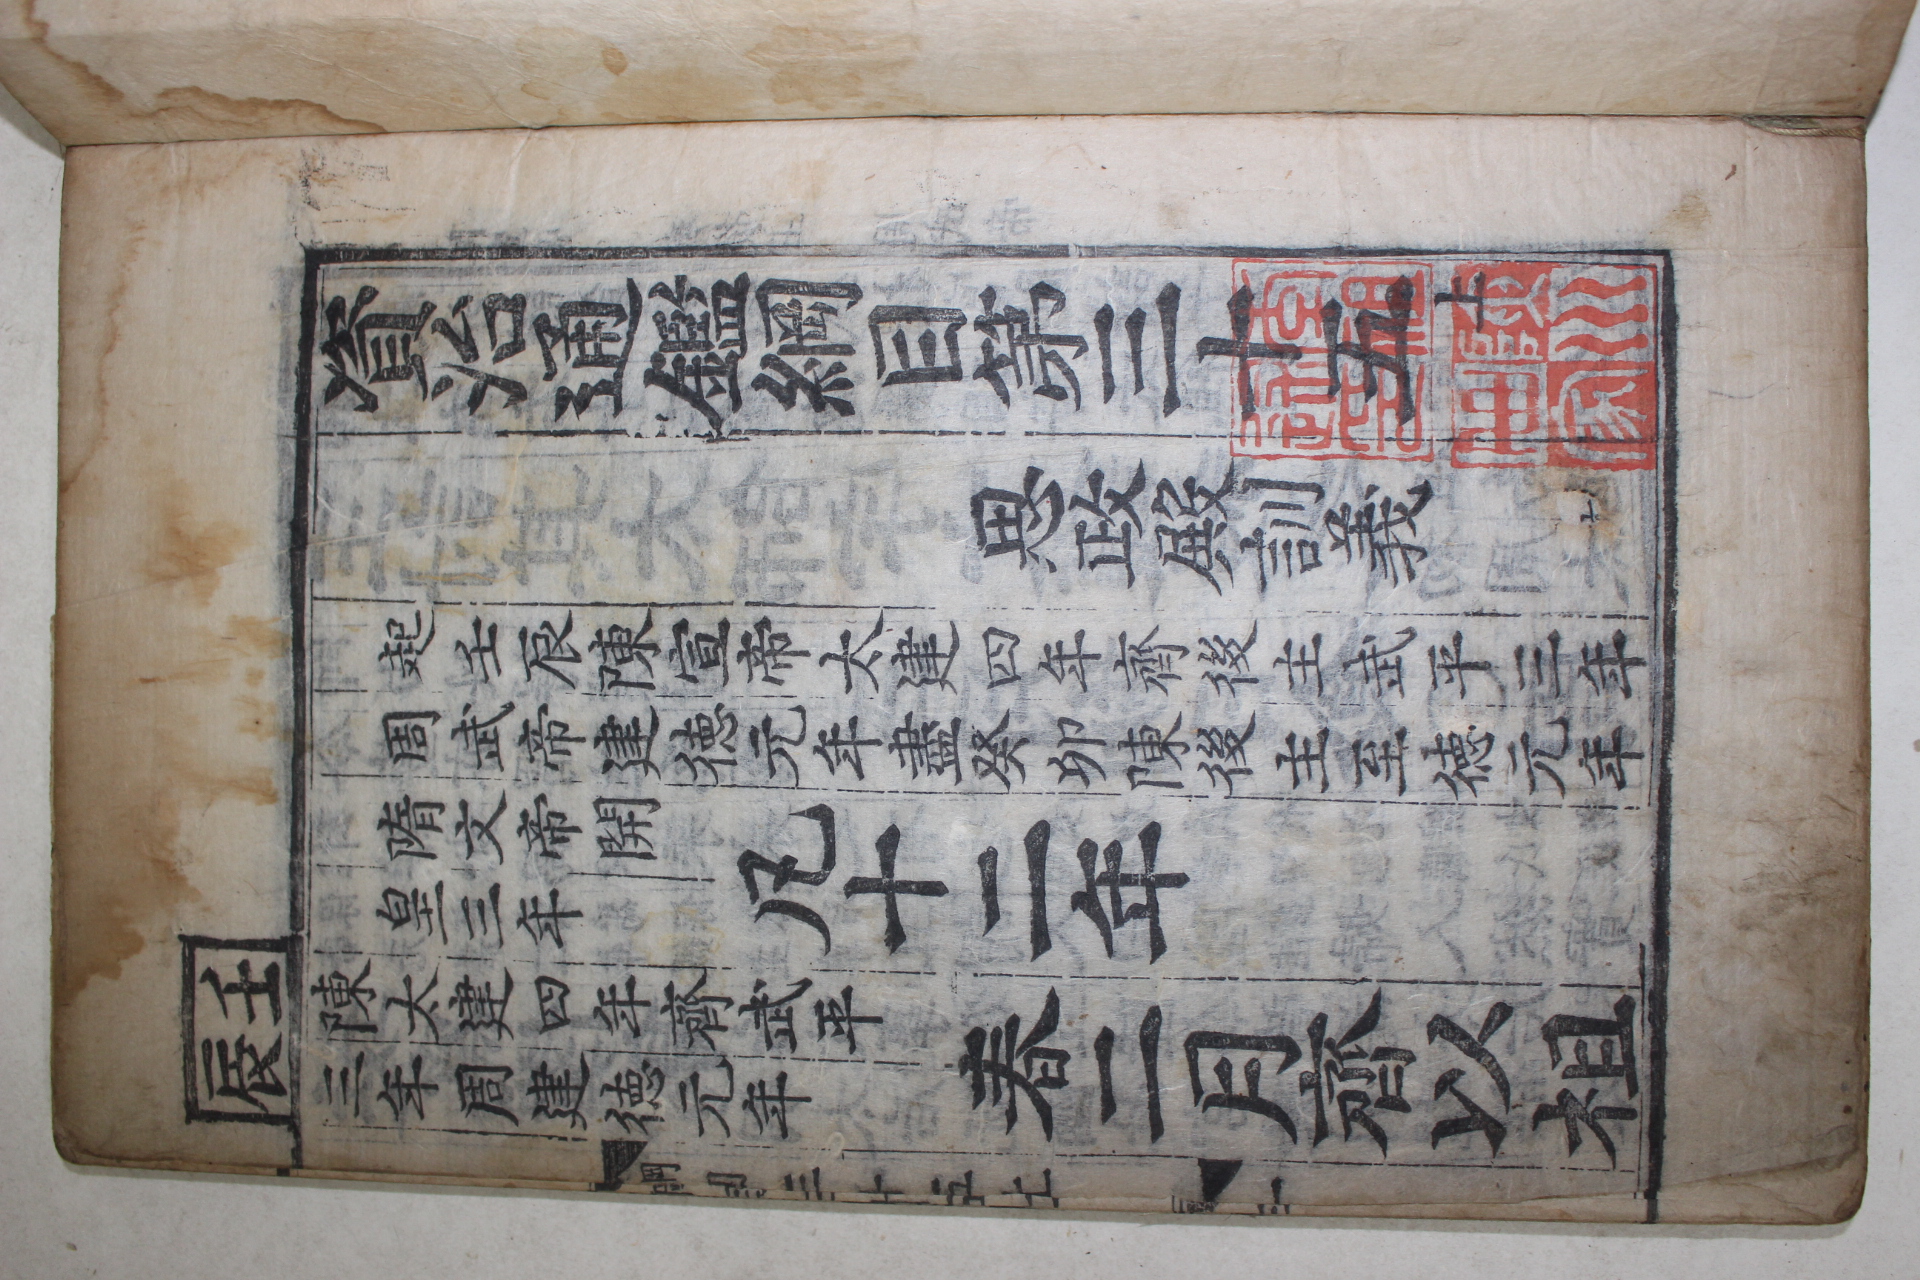 資治通鑑綱目第三十五上
思政殿訓義
起壬辰陳宣帝太建四年齊後主武平三年
周武帝建德元年盡癸卯陳後主至德元年
隋文帝開
皇三年
凡十二年
壬辰
陳太建四年齊武平
三年周建德元年
春二月齊以祖
綱目三十五上